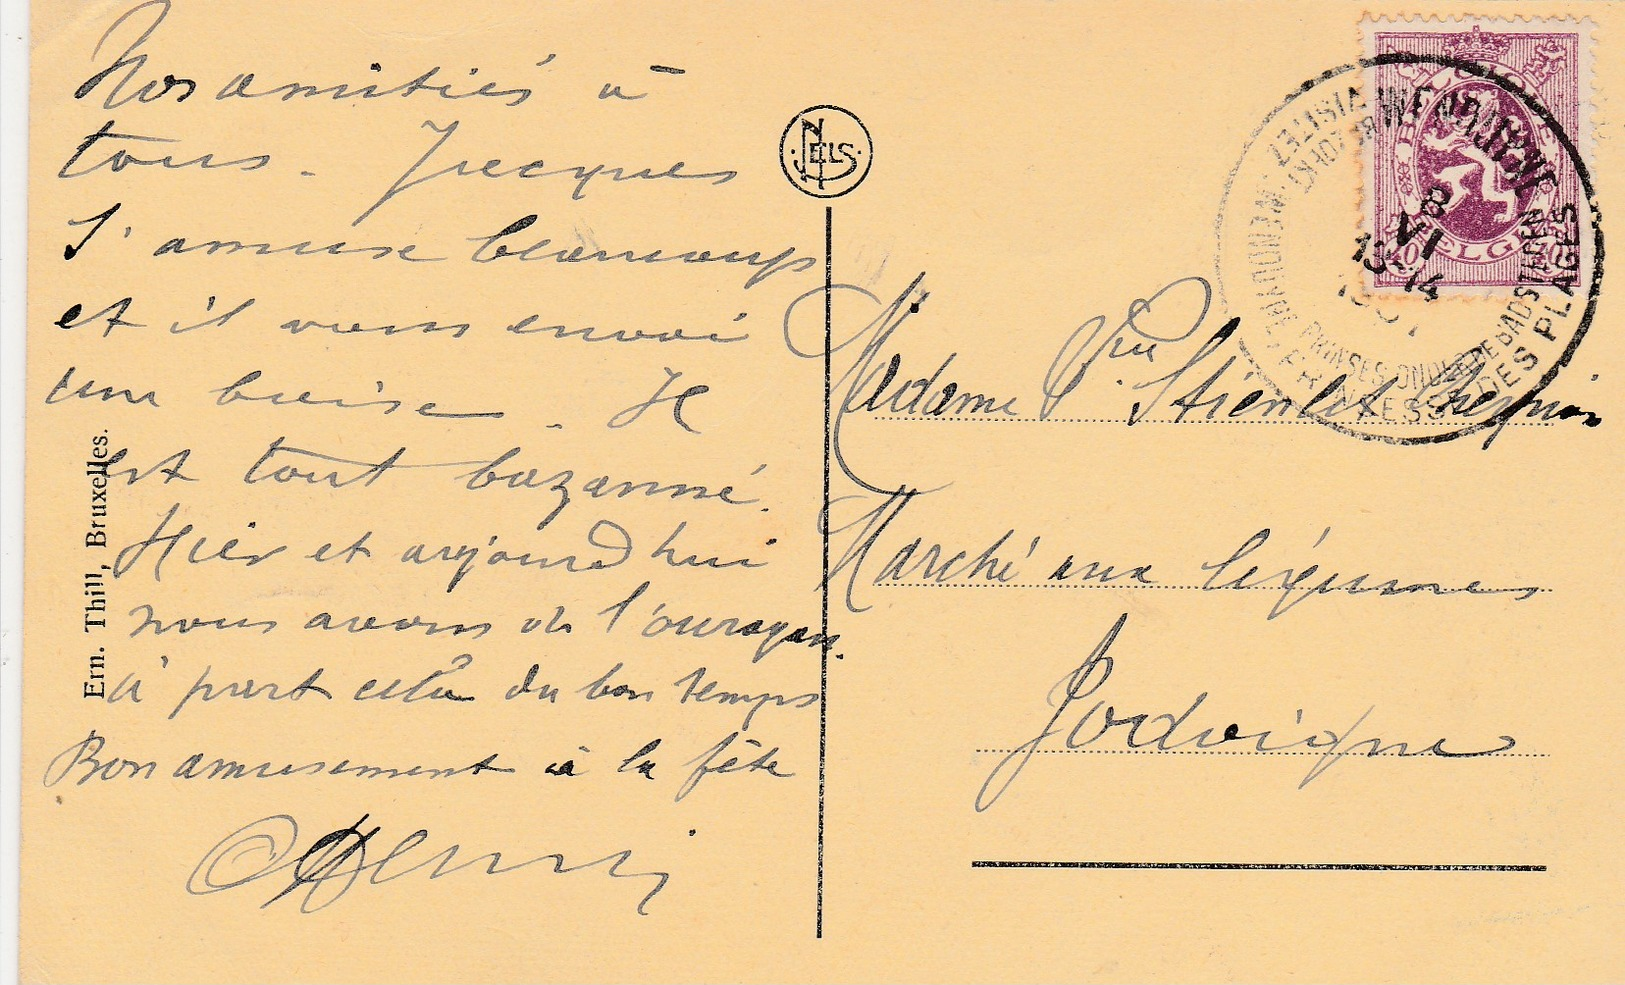 Nos amitiés à
tous. Jacques
s'amuse beaucoup
et il vous envoi
une baise. Il
est tout bazanné.
Hier et aujourd hui
nous avons de l'ouragan.
à part cela du bon temps
Bon amusement à la fête
Henri
Ern. Thill, Bruxelles.
NELS
Madame Vve Stiénlet
Marché aux légumes
Jodoigne
BELGIQUE
BELGIË
WENDUYNE
8
VI
13-14
VISITEZ WENDUYNE, PRINCESSE DES PLAGES
BEZOEKT
PRINSES ONDER DE BADSTEDEN